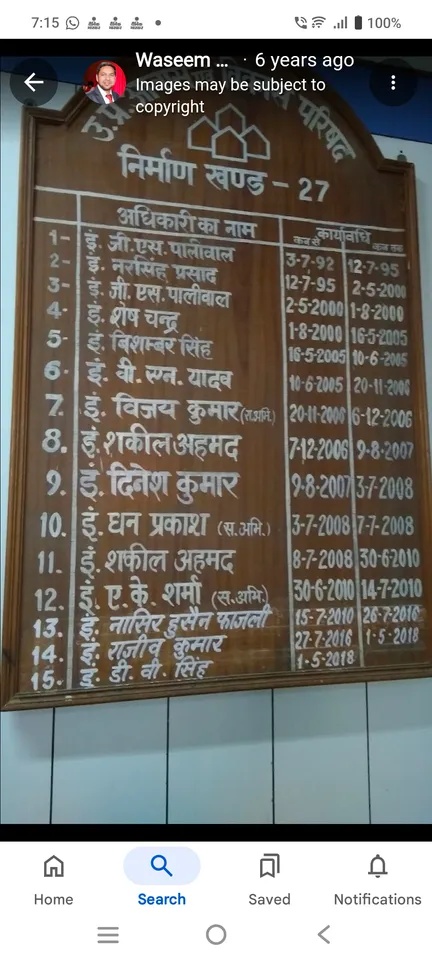 7:15 100%
Waseem ... · 6 years ago
Images may be subject to
copyright
उ.प्र. आवास एवं विकास परिषद
निर्माण खण्ड - 27
अधिकारी का नाम कार्यावधि
कब से कब तक
1- इं. जी.एस. पालीवाल 3-7-92 12-7-95
2- इं. नरसिंह प्रसाद 12-7-95 2-5-2000
3- इं. जी. एस. पालीवाल 2-5-2000 1-8-2000
4- इं. शेष चन्द्र 1-8-2000 16-5-2005
5- इं. बिशम्बर सिंह 16-5-2005 10-6-2005
6. इं. वी. एन. यादव 10-6-2005 20-11-2006
7. इं. विजय कुमार (स.अभि.) 20-11-2006 6-12-2006
8. इं. शकील अहमद 7-12-2006 9-8-2007
9. इं. दिनेश कुमार 9-8-2007 3-7-2008
10. इं. धन प्रकाश (स.अभि.) 3-7-2008 7-7-2008
11. इं. शकील अहमद 8-7-2008 30-6-2010
12. इं. ए. के. शर्मा (स.अभि.) 30-6-2010 14-7-2010
13. इं. नासिर हुसैन फाजली 15-7-2010 26-7-2016
14. इं. राजीव कुमार 27-7-2016 1-5-2018
15. इं. डी. वी. सिंह 1-5-2018
Home Search Saved Notifications